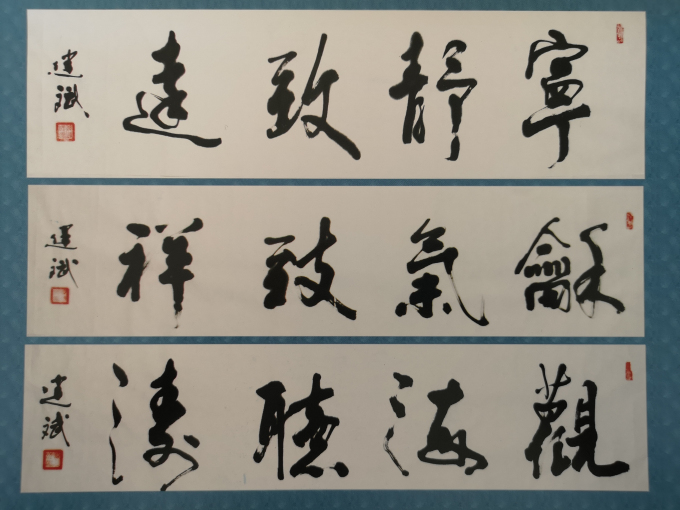 寧靜致遠
斌
龢氣致祥
斌
觀海聽濤
斌